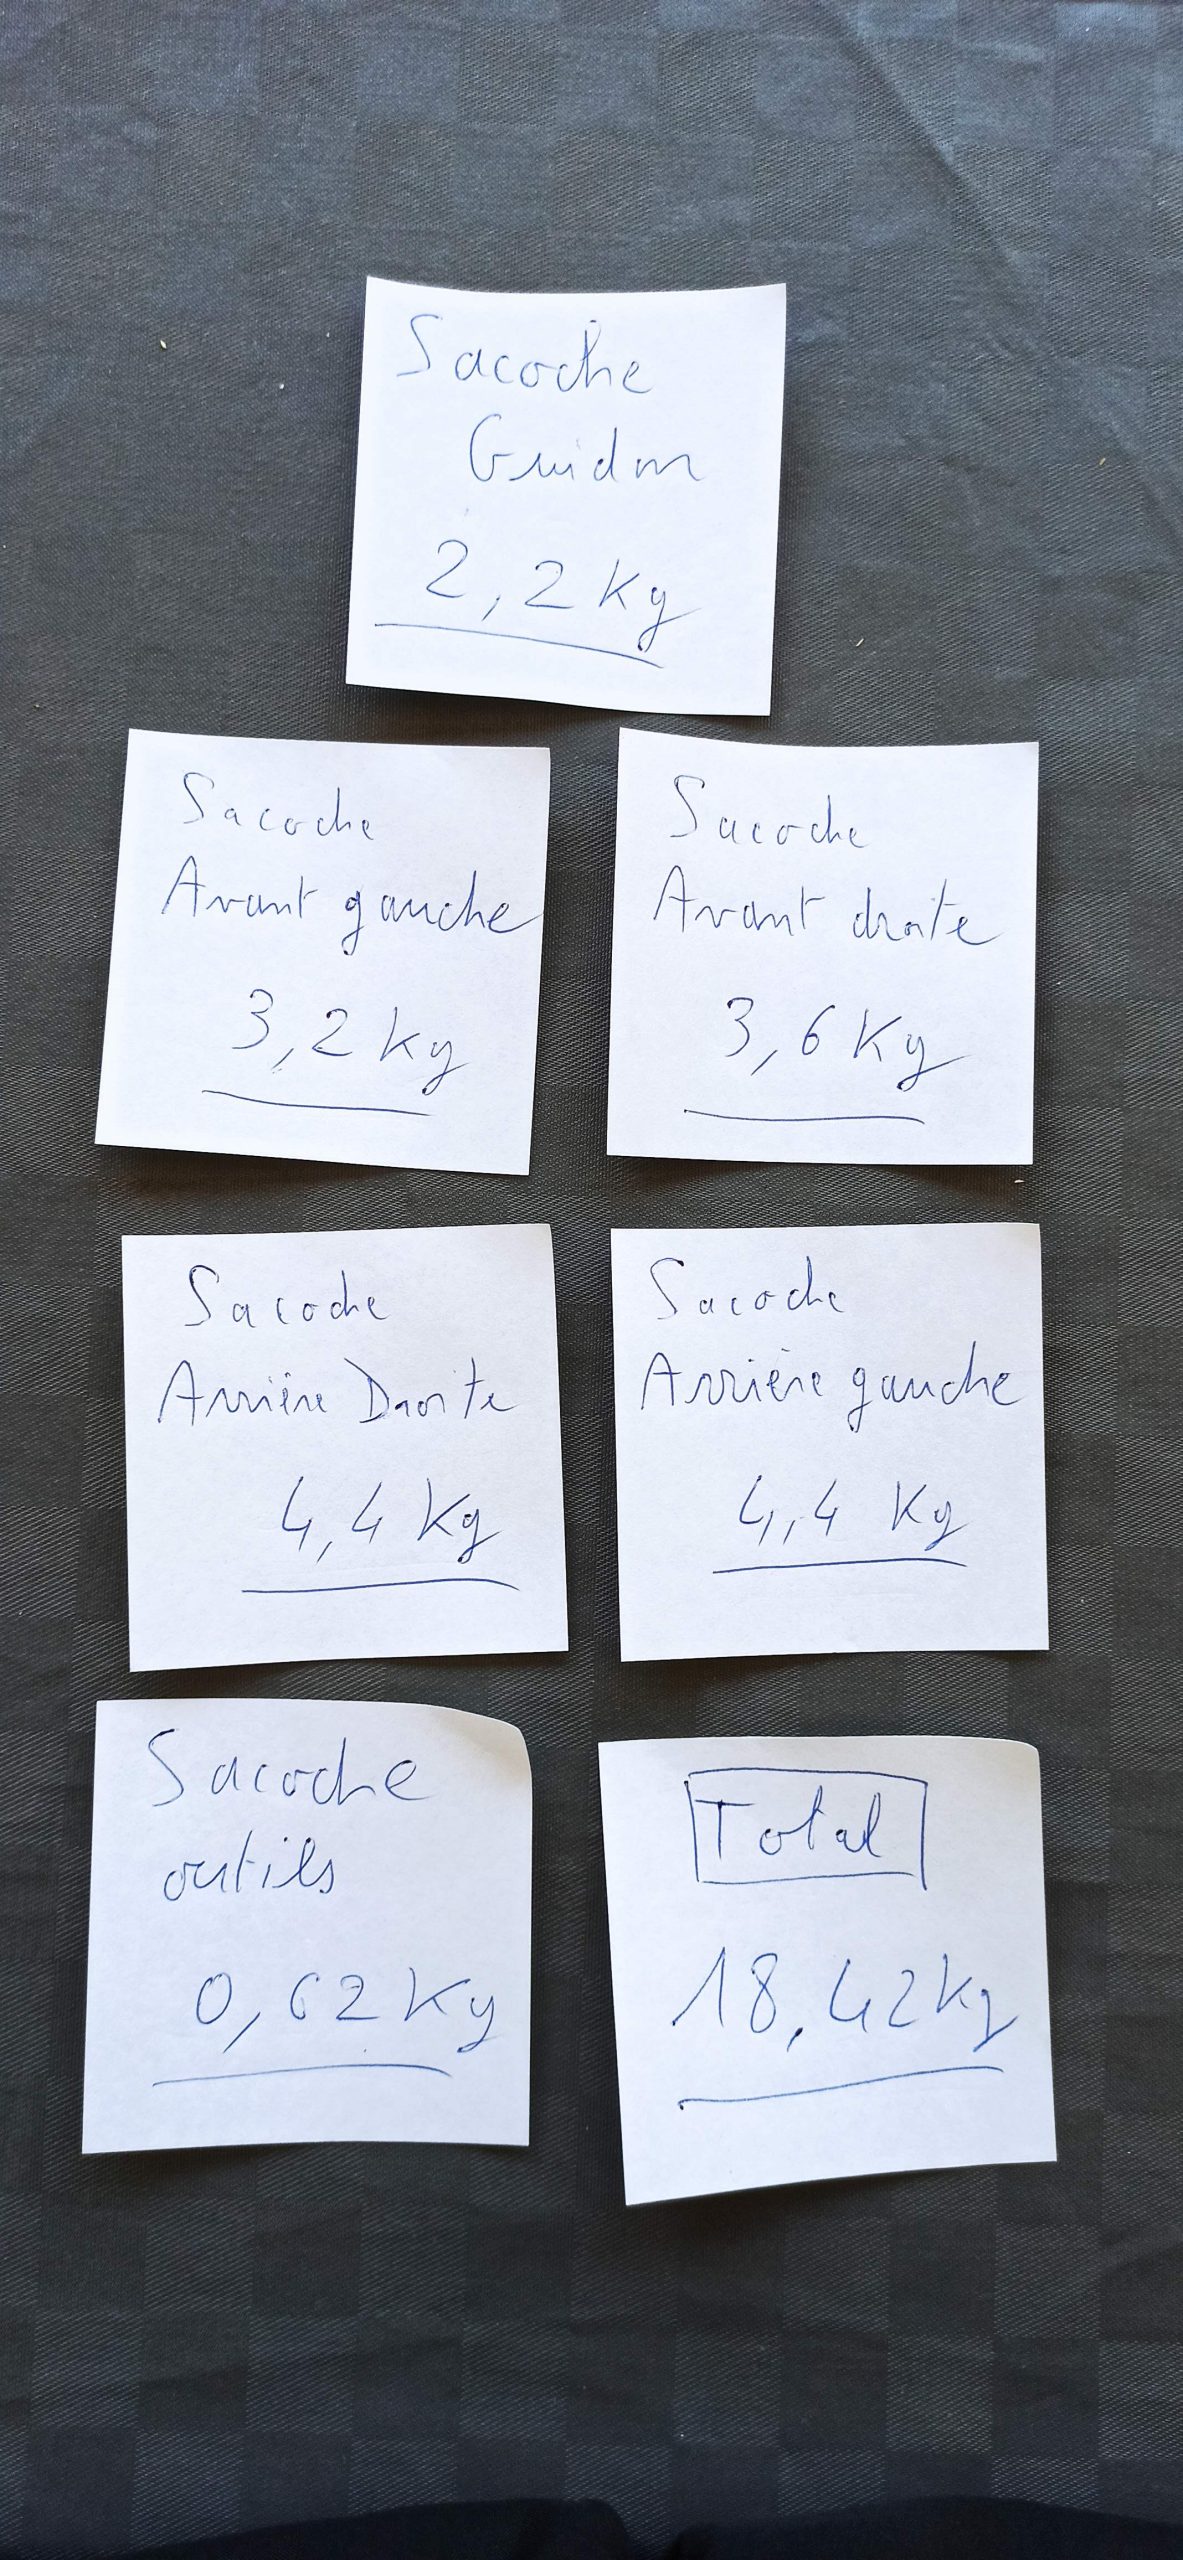 Sacoche
Guidon
2,2 Kg
Sacoche
Avant gauche
3,2 Kg
Sacoche
Avant droite
3,6 Kg
Sacoche
Arrière Droite
4,4 Kg
Sacoche
Arrière gauche
4,4 Kg
Sacoche
outils
0,62 Kg
Total
18,42 kg